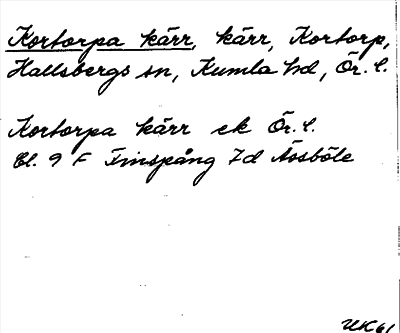 Kortorpa kärr, kärr, Kortorp,
Hallsbergs sn, Kumla hd, Ör. l.
Kortorpa kärr ek Ör. l.
Bl. 9 F Finspång 7d Åssböle
UK61